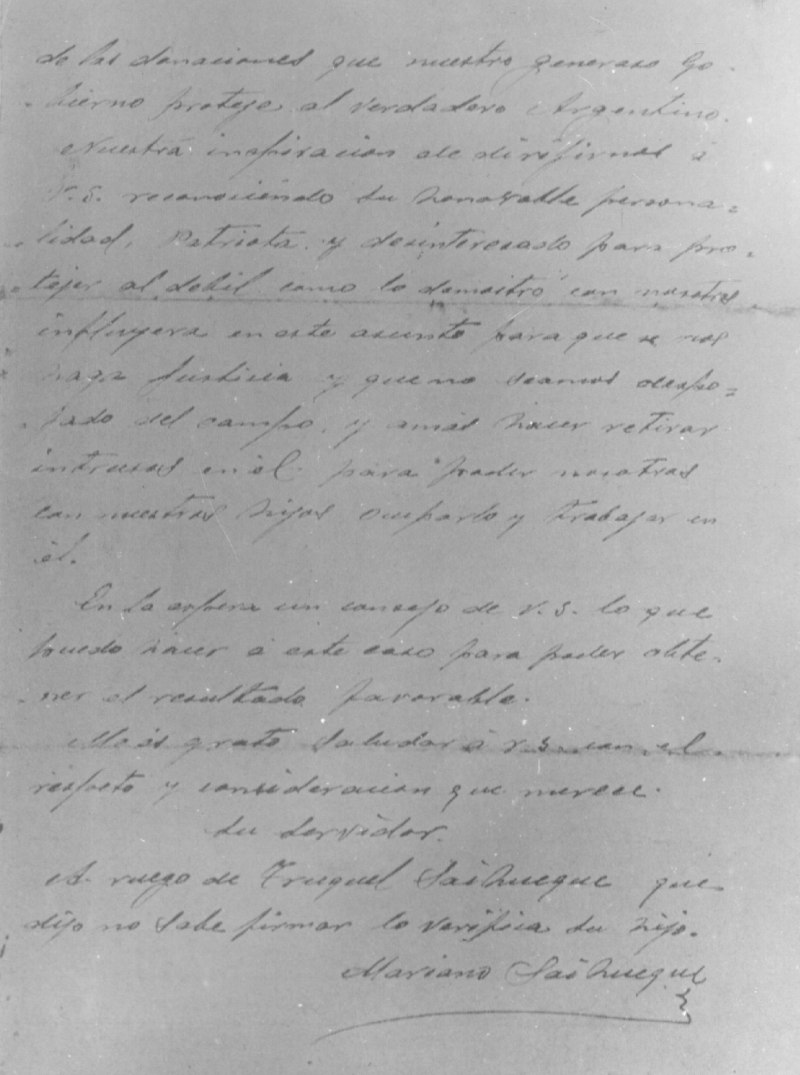 de las donaciones que nuestro generoso Go-
bierno proteje al verdadero Argentino.
Nuestra inspiracion de dirijirnos á
V.S. reconociendo su honorable persona=
lidad, Patriota y desinteresado para pro=
tejer al debil como lo demostró con nosotros
influyera en este asunto para que se nos
haga Justicia y que no seamos despo=
jado del campo, y amás hacer retirar
intrusos en él para poder nosotros
con nuestros hijos ocuparlo y trabajar en
él.
En la espera un consejo de V.S. lo que
puedo hacer á este caso para poder obte-
ner el resultado favorable.
Me es grato saludar á V.S. con el
respeto y consideracion que merece.
Su Servidor.
A ruego de Truquel Saihueque que
dijo no sabe firmar lo verifica su hijo.
Mariano Saihueque